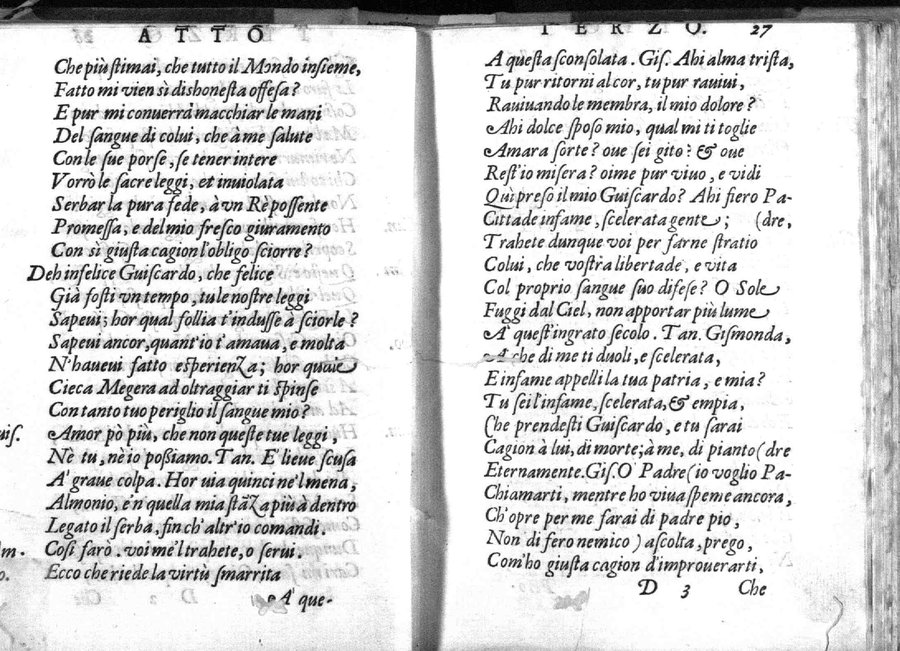 ATTO
Che più stimai, che tutto il Mondo insieme,
Fatto mi vien sì dishonesta offesa?
E pur mi conuerrà macchiar le mani
Del sangue di colui, che à me salute
Con le sue porse, se tener intere
Vorrò le sacre leggi, et inuiolata
Serbar la pura fede, à vn Rè possente
Promessa, e del mio fresco giuramento
Con sì giusta cagion l'obligo sciorre?
Deh infelice Guiscardo, che felice
Già fosti vn tempo, tu le nostre leggi
Sapeui; hor qual follia t'indusse à sciorle?
Sapeui ancor, quant'io t'amaua, e molta
N'haueui fatto esperienza; hor quale
Cieca Megera ad oltraggiar ti spinse
Con tanto tuo periglio il sangue mio?
uis. Amor pò più, che non queste tue leggi,
Nè tu, nè io possiamo. Tan. E' lieue scusa
A' graue colpa. Hor uia quinci ne'l mena,
Almonio, e'n quella mia stãza più à dentro
Legato il serba, fin ch'altr'io comandi.
lm. Così farò. voi me'l trahete, o serui.
o. Ecco che riede la virtù smarrita
A' que-
TERZO. 27
A questa sconsolata. Gis. Ahi alma trista,
Tu pur ritorni al cor, tu pur rauiui,
Rauiuando le membra, il mio dolore?
Ahi dolce sposo mio, qual mi ti toglie
Amara sorte? oue sei gito? & oue
Rest'io misera? oime pur viuo, e vidi
Quì preso il mio Guiscardo? Ahi fiero Pa-
Cittade infame, scelerata gente; (dre,
Trahete dunque voi per farne stratio
Colui, che vostra libertade, e vita
Col proprio sangue suo difese? O Sole
Fuggi dal Ciel, non apportar più lume
A' quest'ingrato secolo. Tan. Gismonda,
A che di me ti duoli, e scelerata,
E infame appelli la tua patria, e mia?
Tu sei l'infame, scelerata, & empia,
Che prendesti Guiscardo, e tu sarai
Cagion à lui, di morte; à me, di pianto (dre
Eternamente. Gis. O Padre (io voglio Pa-
Chiamarti, mentre ho viua speme ancora,
Ch'opre per me farai di padre pio,
Non di fero nemico) ascolta, prego,
Com'ho giusta cagion d'improuerarti,
D 3 Che